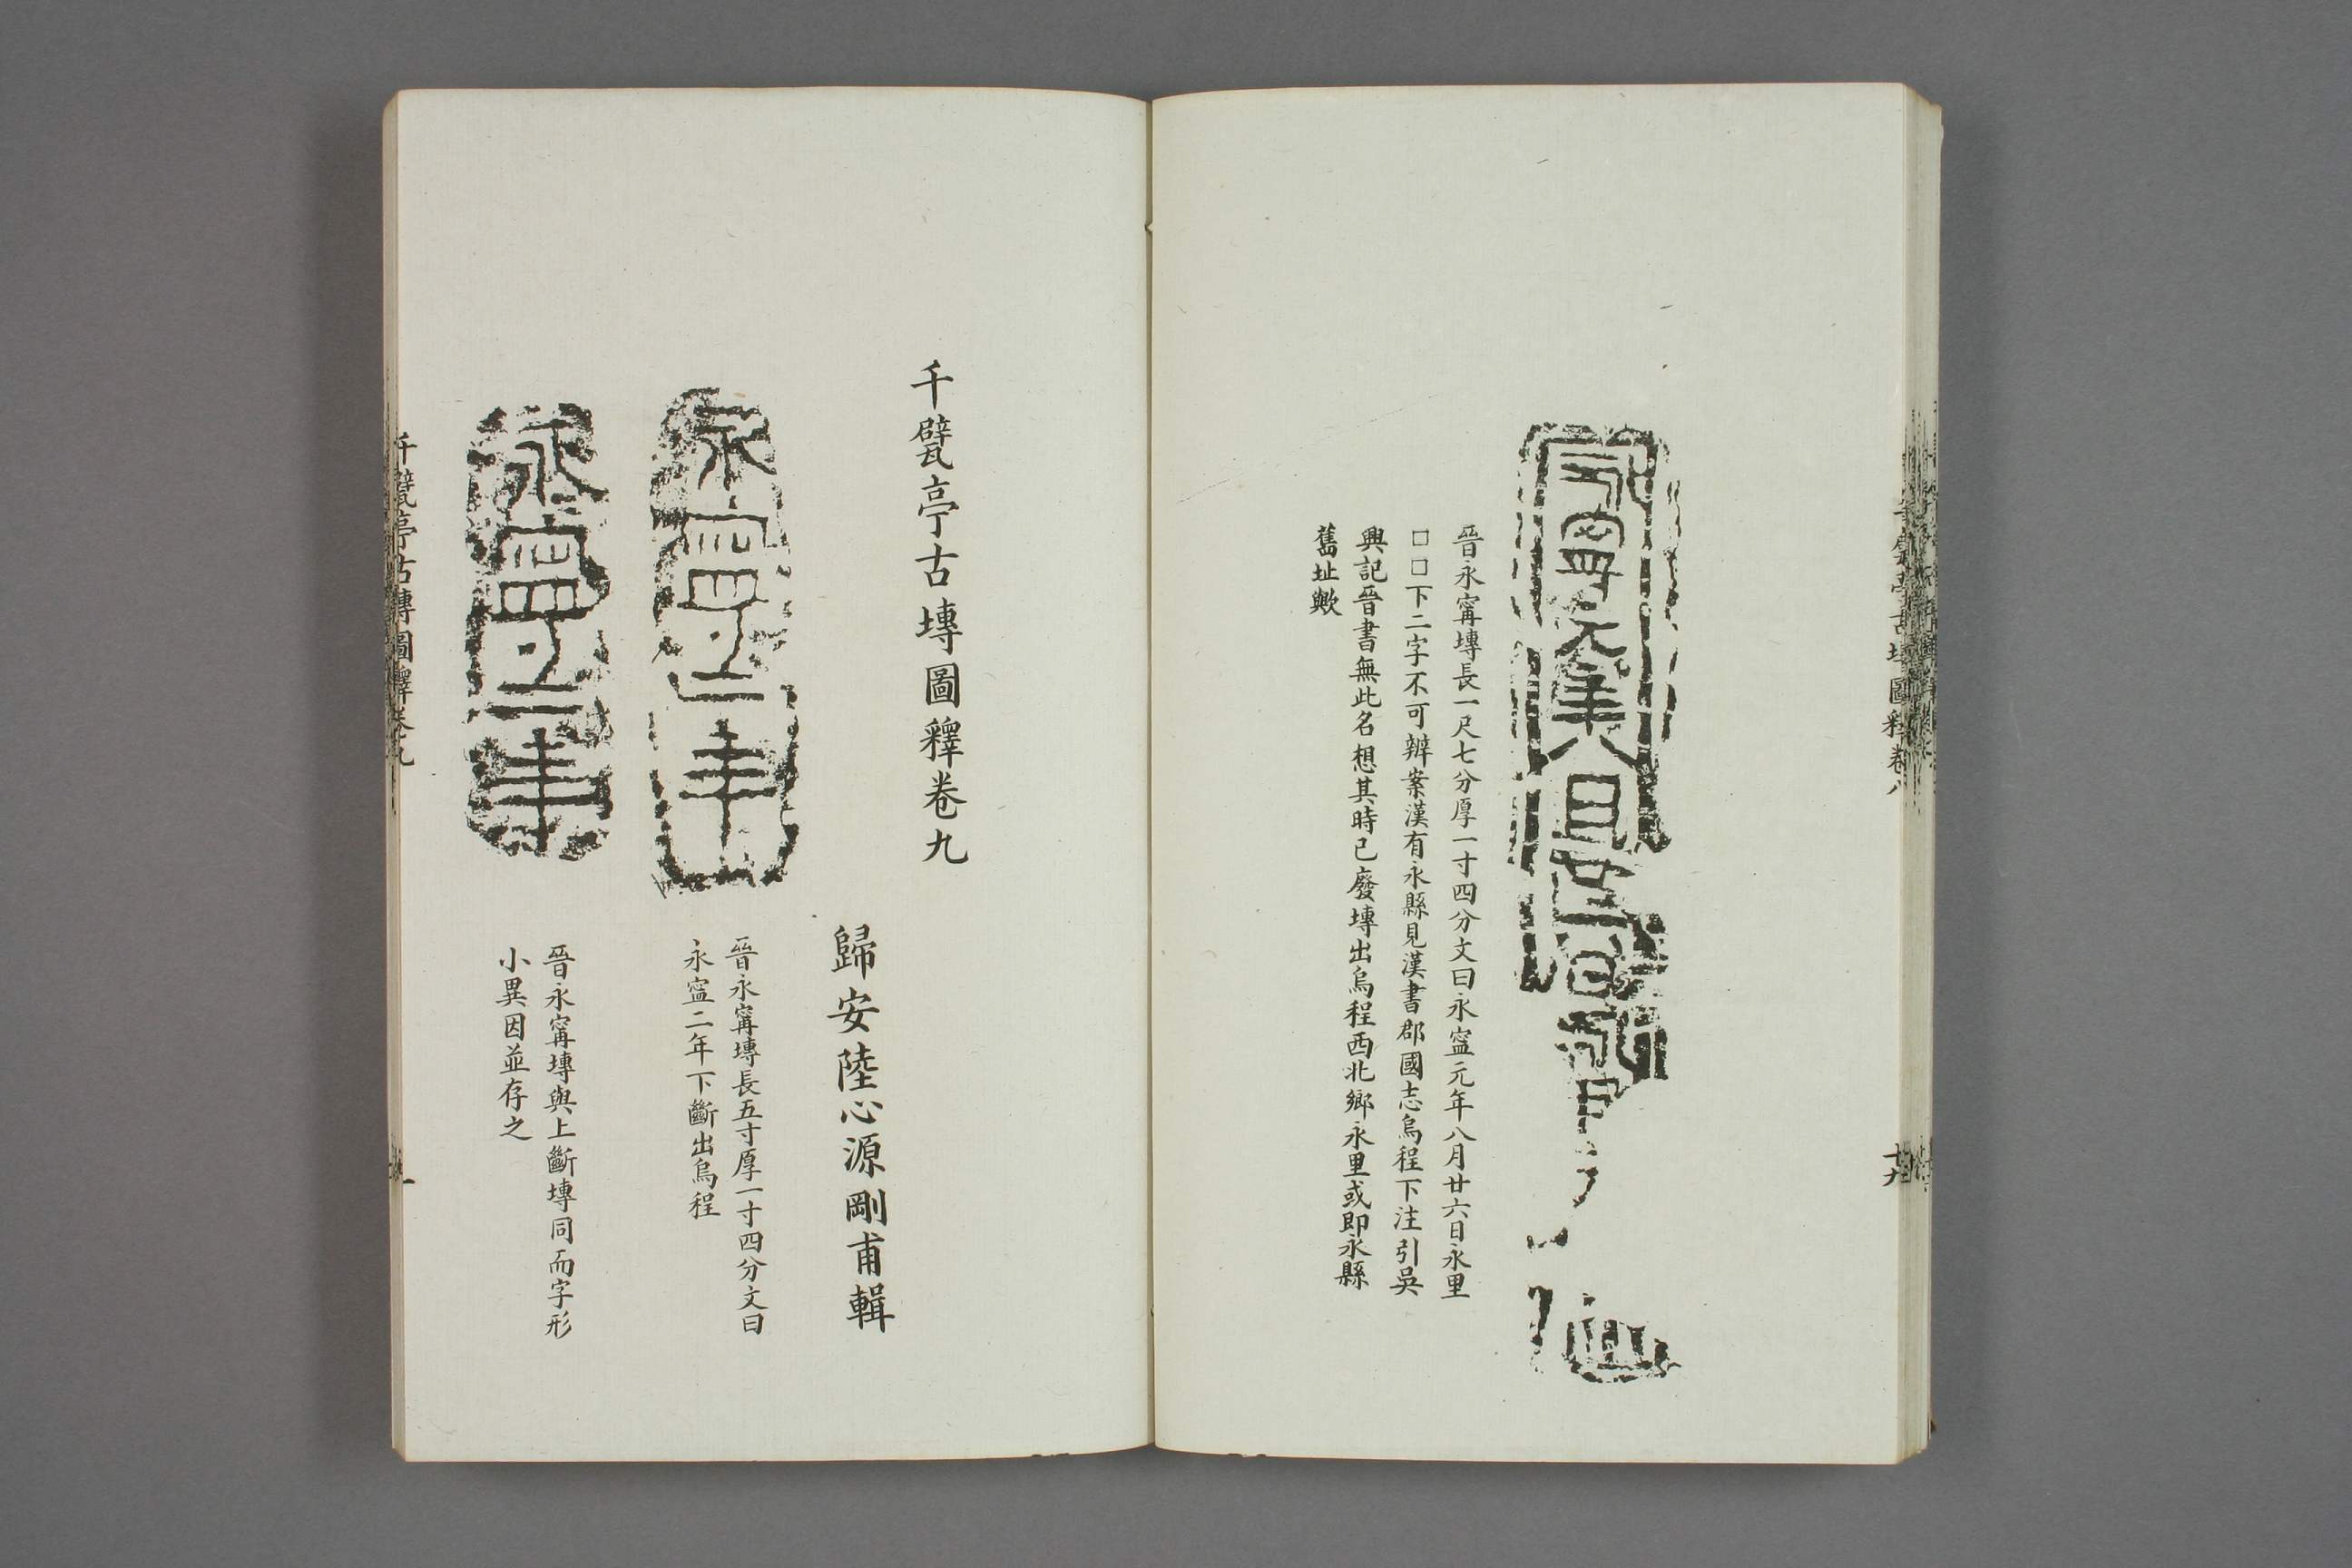 晉永寗塼長一尺七分厚一寸四分文曰永寍元年八月廿六日永里
□□下二字不可辦案漢有永縣見漢書郡國志烏程下注引吳
興記晉書無此名想其時已廢塼出烏程西北鄉永里或即永縣
舊址歟
千甓亭古塼圖釋卷九
歸安陸心源剛甫輯
永寍二年
晉永寗塼長五寸厚一寸四分文曰
永寍二年下斷出烏程
永寍二年
晉永寗塼與上斷塼同而字形
小異因並存之
千甓亭古塼圖釋卷九
一